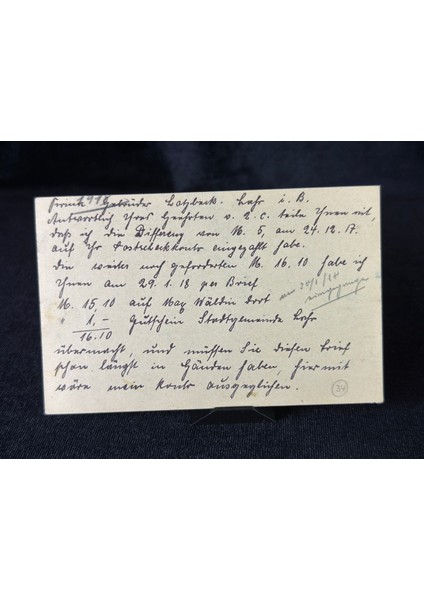 Firma Gebrüder Lotzbeck. Lahr i. B.
Antwortlich Ihres Geehrten v. 2. c. teile Ihnen mit,
daß ich die Differenz von M. 5, am 24.12.17.
auf Ihr Postscheckkonto eingezahlt habe.
Die weiter noch geforderten M. 16.10 habe ich
Ihnen am 29.1.18 per Brief
M. 15,10 auf Max Wäldin dort
" 1,- Gutschein Stadtgemeinde Lahr
16.10
am 30/1/18
eingegangen
übermacht, und müssten Sie diesen Brief
schon längst in Händen haben, hiermit
wäre mein Konto ausgeglichen.
34